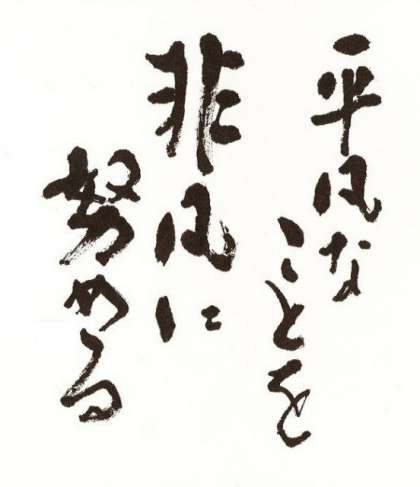 平凡な
ことを
非凡に
努める